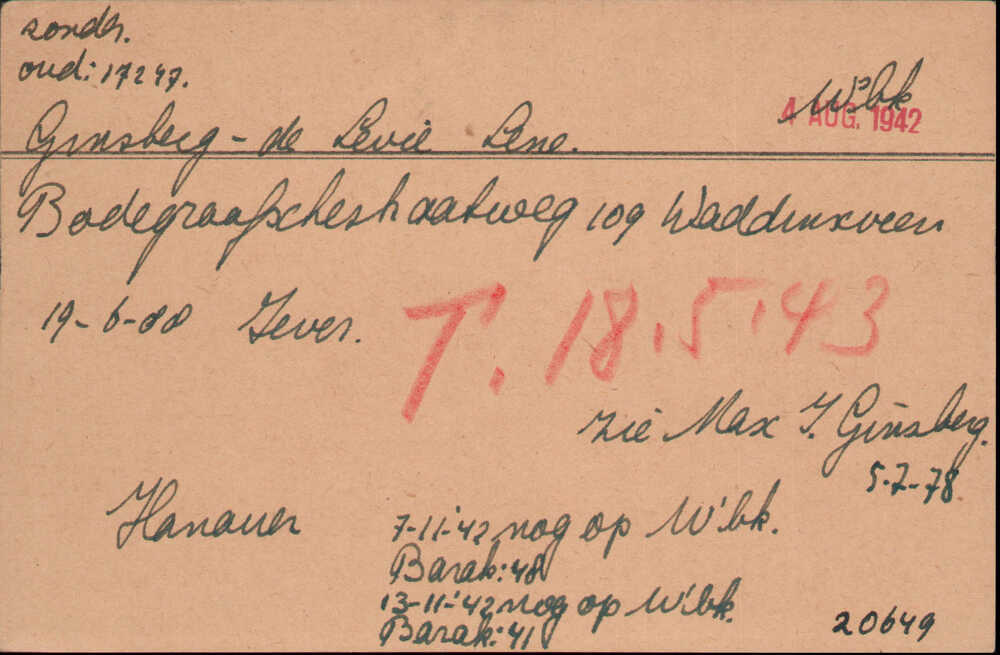 zonder.
oud: 17247.
W'bk
4 AUG. 1942
Ginsberg - de Levie Lene.
Bodegraafschestraatweg 109 Waddinxveen
19-6-88 Jever.
T. 18.5.43
zie Max J. Ginsberg.
5-7-78
Hanauer
7-11-'42 nog op W'bk.
Barak: 48
13-11-'42 nog op W'bk.
Barak: 41
20649